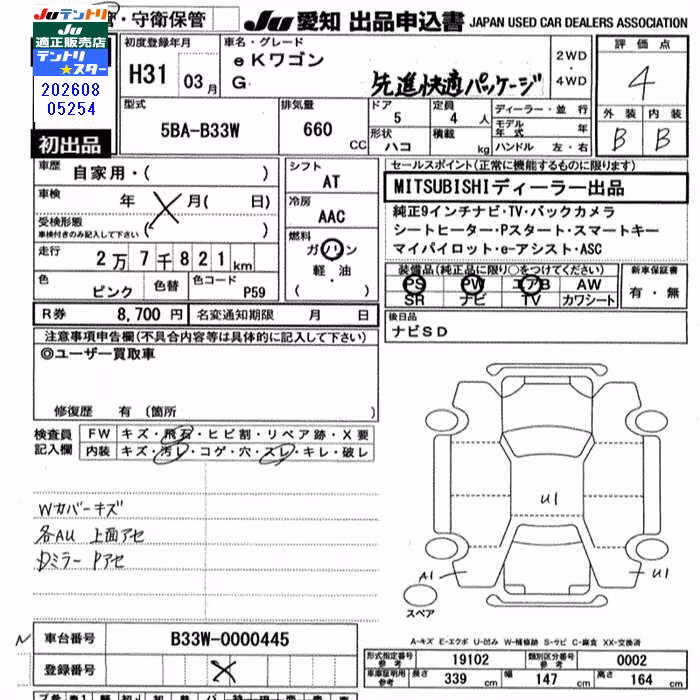 Juテントリ
Ju
適正販売店
テントリ
★スター
202608
05254
・守衛保管
Ju 愛知 出品申込書 JAPAN USED CAR DEALERS ASSOCIATION
初出品
初度登録年月
H31 03月
車名・グレード
eKワゴン
G 先進快適パッケージ
2WD・
4WD
評価点
4
外装 内装
B B
型式
5BA-B33W
排気量
660 CC
ドア
5
定員
4 人
形状
ハコ
積載
kg
ディーラー・並行
モデル
年式 年
ハンドル 左・右
車歴
自家用・( )
車検
年 月( 日)
受検形態
車検付きのみ記入して下さい ( )
走行
2万7千821km
色
ピンク
色替
色コード
P59
シフト
AT
冷房
AAC
燃料
ガソリン
軽・油
( )
セールスポイント(正常に機能するものに限ります)
MITSUBISHIディーラー出品
純正9インチナビ・TV・バックカメラ
シートヒーター・Pスタート・スマートキー
マイパイロット・e-アシスト・ASC
装備品(純正品に限り○をつけてください)
PS PW エアB AW
SR ナビ TV カワシート
新車保証書
有・無
R券 8,700 円 名変通知期限 月 日
後日品
ナビSD
注意事項申告欄(不具合内容等は具体的に記入して下さい)
◎ユーザー買取車
修復歴 有 (箇所 )
検査員
記入欄
FW キズ・飛石・ヒビ割・リペア跡・X要
内装 キズ・汚レ・コゲ・穴・スレ・キレ・破レ
Wカバーキズ
各AU 上面アセ
Dミラー Pアセ
U1
A1
U1
スペア
N 車台番号 B33W-0000445
登録番号
A-キズ E-エクボ U-凹み W-補修跡 S-サビ C-腐食 XX-交換済
形式指定番号
参考
19102
類別区分番号
参考
0002
車庫証明用
参考
長さ 339 cm 幅 147 cm 高さ 164 cm